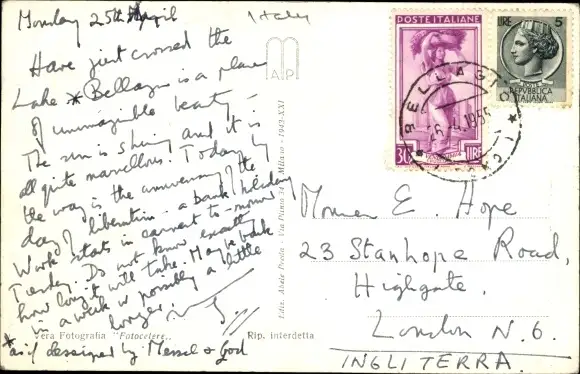 Monday 25th April
Italy
Have just crossed the
Lake * Bellagio is a place
of unimaginable beauty.
The sun is shining and it is
all quite marvellous. Today by
the way is the anniversary of the
day of liberation - a bank holiday
Work starts in earnest to-morrow
Tuesday. Do not know exactly
how long it will take. May be back
in a week or possibly a little
longer.
*as if designed by Messel & God
Vera Fotografia "Fotocelere"
Rip. interdetta
MAP
Milano - 1943-XXI
POSTE ITALIANE
30 LIRE
LIRE 5
POSTE
REPVBBLICA
ITALIANA
BELLAGIO
26.4.1955
(COMO)
E. Hope
23 Stanhope Road,
Highgate.
London N.6.
INGLITERRA.